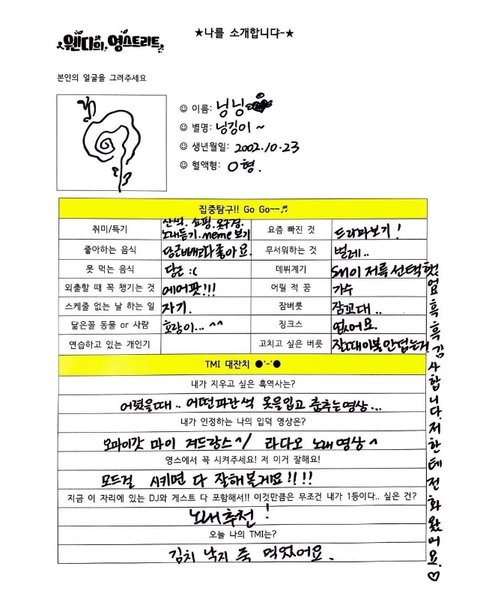 웬디의 영스트리트
★나를 소개합니다-★
본인의 얼굴을 그려주세요
☺ 이름: 닝닝
☺ 별명: 닝깅이 ~
☺ 생년월일: 2002.10.23
☺ 혈액형: O형.
집중탐구!! Go Go~~♬
취미/특기 산책. 쇼핑. 옷구경. 노래듣기. meme보기
요즘 빠진 것 드라마보기!
좋아하는 음식 당근빼고다좋아요.
무서워하는 것 벌레..
못 먹는 음식 당근 :(
데뷔계기 SM이 저를 선택했
외출할 때 꼭 챙기는 것 에어팟!!!
어릴 적 꿈 가수
스케줄 없는 날 하는 일 자기.
잠버릇 잠꼬대..
닮은꼴 동물 or 사람 호랑이... ^^
징크스 없어요.
연습하고 있는 개인기
고치고 싶은 버릇 잘때이불안덥는거
어 흑흑감사합니다.저한테전화왔어요.♡
TMI 대잔치 ●'-'●
내가 지우고 싶은 흑역사는?
어렸을때.. 어떤파란색 옷을입고 춤추는영상...
내가 인정하는 나의 입덕 영상은?
오마이갓 마이 져드랑스^/ 라디오 노래영상^
영스에서 꼭 시켜주세요! 저 이거 잘해요!
모든걸 시키면 다 잘해볼게요!!!!
지금 이 자리에 있는 DJ와 게스트 다 포함해서!! 이것만큼은 무조건 내가 1등이다.. 싶은 건?
노래추천!
오늘 나의 TMI는?
김치 낙지 죽 먹었어요.